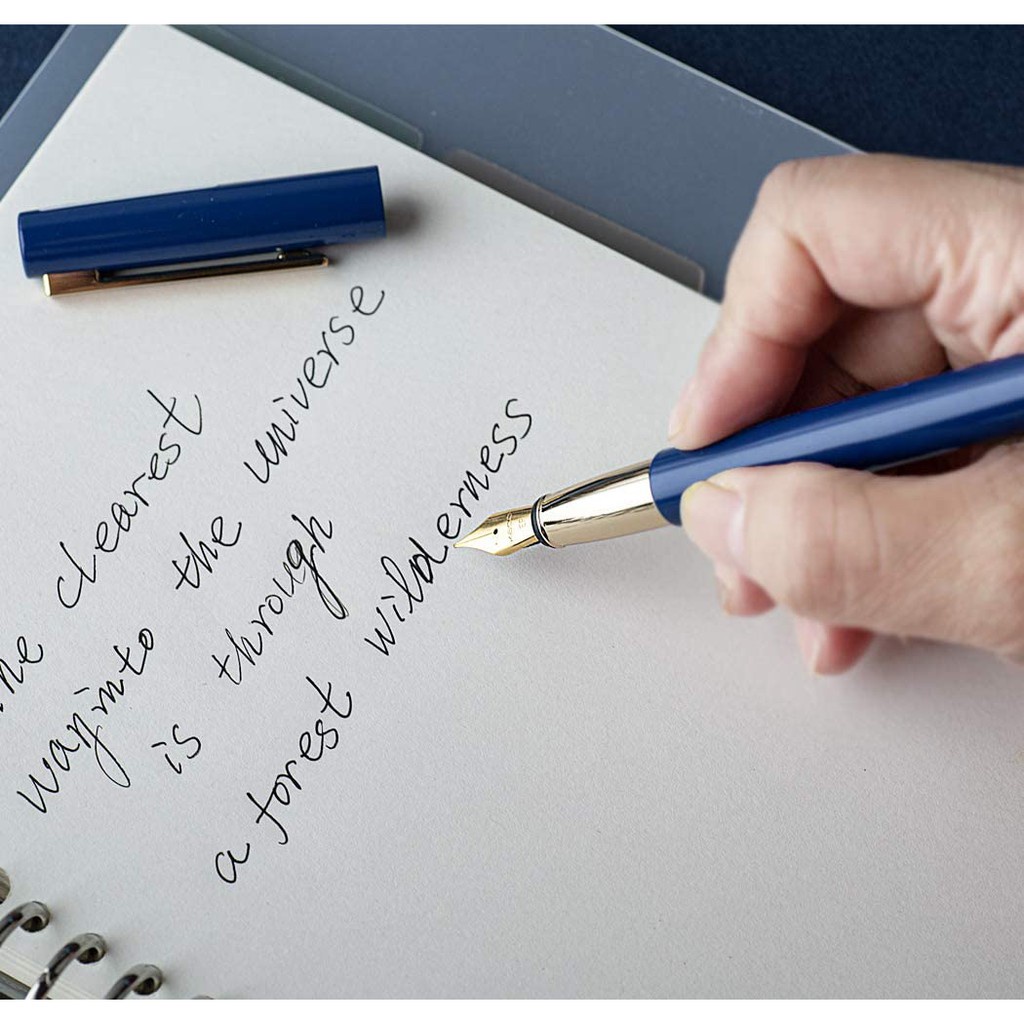 he clearest
wayinto the universe
is through
a forest wilderness